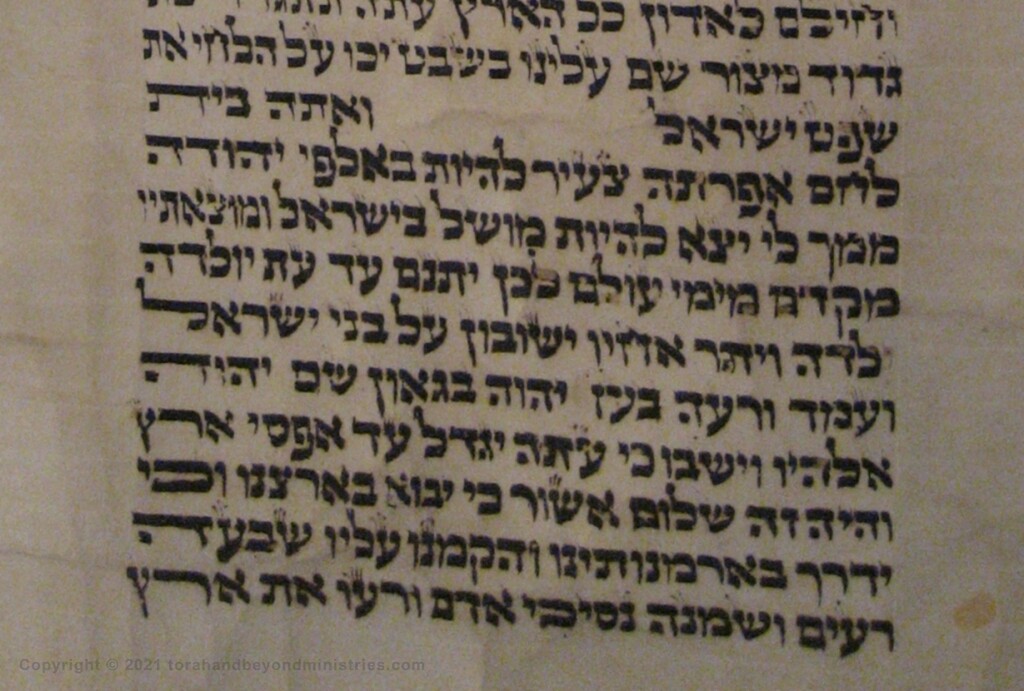 וחילם לאדון כל הארץ עתה תתגדדי בת
גדוד מצור שם עלינו בשבט יכו על הלחי את
שפט ישראל ואתה בית
לחם אפרתה צעיר להיות באלפי יהודה
ממך לי יצא להיות מושל בישראל ומוצאתיו
מקדם מימי עולם לכן יתנם עד עת יולדה
לדה ויתר אחיו ישובון על בני ישראל
ועמד ורעה בעז יהוה בגאון שם יהוה
אלהיו וישבו כי עתה יגדל עד אפסי ארץ
והיה זה שלום אשור כי יבוא בארצנו וכי
ידרך בארמנותינו והקמנו עליו שבעה
רעים ושמנה נסיכי אדם ורעו את ארץ
Copyright © 2021 torahandbeyondministries.com